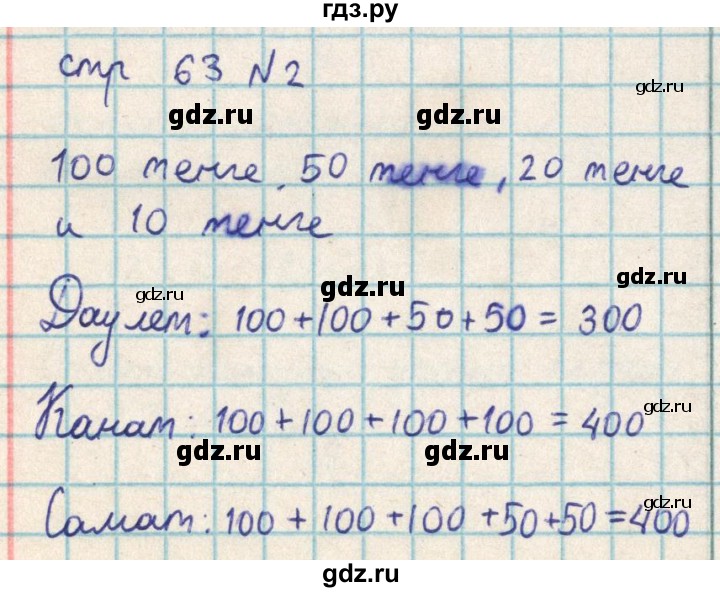 гдз.ру
стр 63 N2
gdz.ru
gdz.ru gdz.ru
100 тенге, 50 тенге, 20 тенге
и 10 тенге
gdz.ru
gdz.ru gdz.ru
Даулет: 100+100+50+50 = 300
gdz.ru
Канат: 100+100+100+100 = 400
gdz.ru gdz.ru
gdz.ru
Самат: 100+100+100+50+50=400
gdz.ru